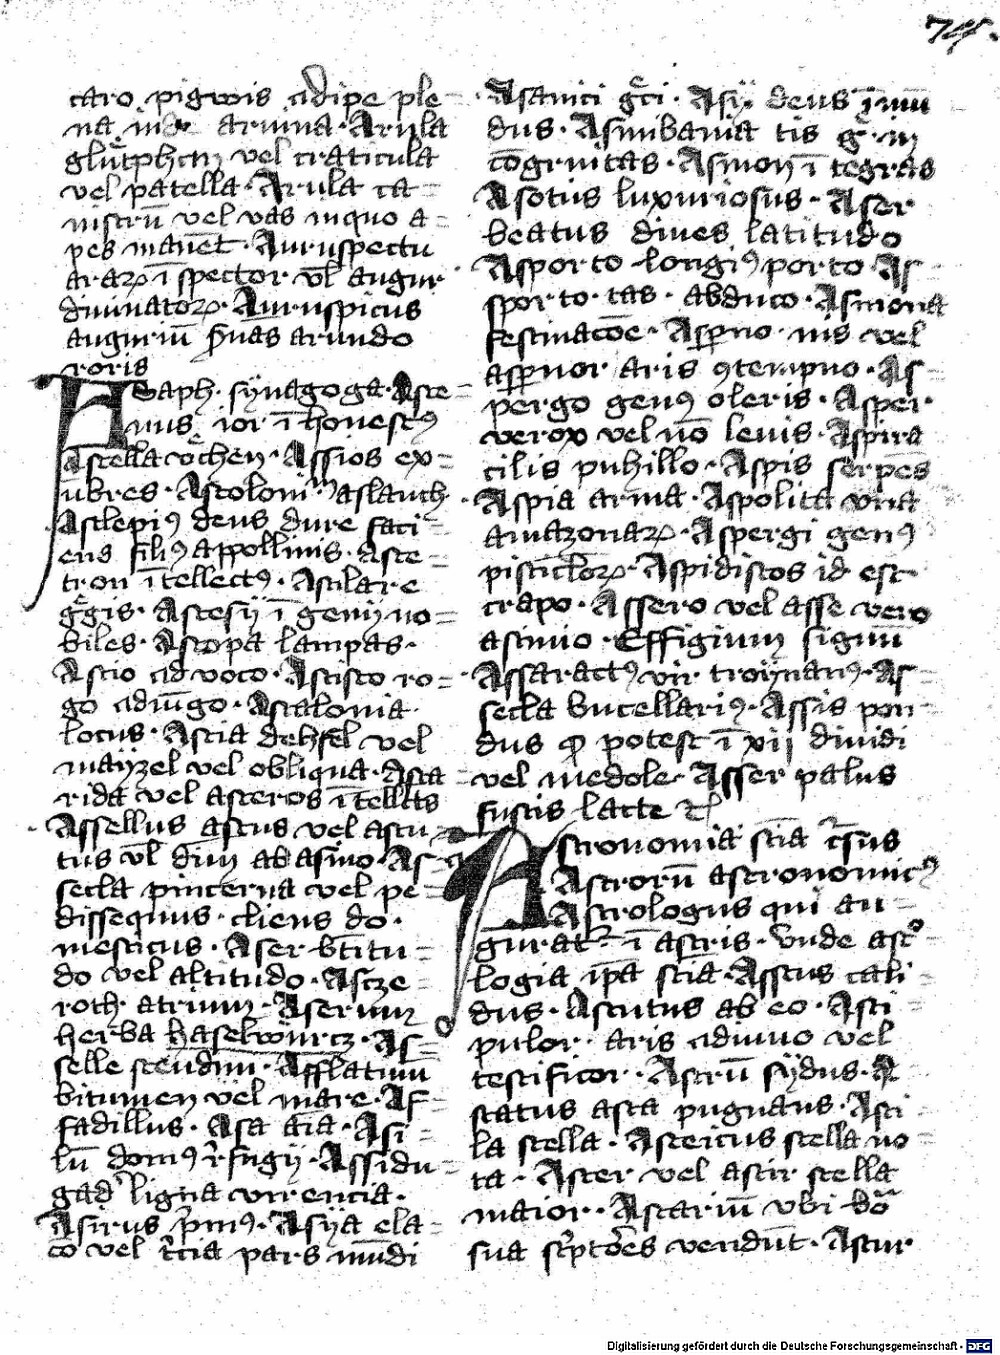 74.
caro pigwis adipe ple=
na inde aruina · Arula
glu̇tphan vel craticula
vel patella · Arula ca=
nistrū vel vas inquo a=
pes manēt · Auruspectu
araꝝ ī spector vl̄ augur
diuinatorꝝ · Auruspicus
auguriū p̄uas arundo
roris
ASaph · sÿnagoga · Asce=
nus ior ī honestꝰ
Ascella vͦchen · Assios ex=
īubres · Ascoloni aslauch
Asclepiꝰ deus dure faci=
ens filiꝰ appollinis · Asce=
tron ītellectꝰ · Ascilare
g̊gis · Ascesÿ ī genÿ no=
biles · Ascopa lampas ·
Ascio ad voco · Ascisco ro=
go adiūgo · Ascalonia
locus · Ascia dehsel vel
maÿzel vel obliqua · Asca=
rida vel asceros ītellc̄s
Assellus ascus vel ascu=
tus vl̄ dīm ab asino · As=
secla pincerna vel pe=
dissequus · cliens do·
mesticus · Aser bt̄itu=
do vel altitudo · Ascze=
roth atrium · Aserum
herba haselwurcz · As=
selle scendūn · Asflatum
bitumen vel mare · Af=
fadillus · Asa aīa · Asi=
lū domꝰ r̄fugÿ · Assidu=
gad' ligna virencia ·
Asirus p̄mꝰ · Asÿa ela=
cō vel t̄cia pars mūdi
Asanici gͨci · Asÿ · deus īmū
dus · Asimbania tis g· in
cōgruitas · Asinon ī tegras
Asotus luxuriosus · Aser
beatus diues latitudo
Asporto longiꝰ porto · As=
sporto · tas · abduco · Asmona
festinacōe · Asꝑno · nis vel
asꝑnor aris ꝯtempno · As=
pergo genꝰ oleris · Asper
verox vel nō leuis · Aspira
cilis puhillo · Aspis serpēs
Aspia arma · Aspolita vna
amazonaꝝ · Aspergi genꝰ
pisticlorꝝ · Aspidiscos id est
crapo · Assero vel asse vero
asimio · Effigium signū
Assaractꝰ vir troÿnanꝰ · As=
secla bucellariꝰ · Assis pon=
dus qͦ potest ī xij diuidi
vel medole · Asser palus
fustis lacte ⁊l
Astronomia scīa c̄sus
Astrorū astronomicꝰ
Astrologus qui au=
gurat' ī astris · vnde astͦ=
logia ip̄a scīa · Asscus cali=
dus · Ascutus ab eo · Asti=
pulor · aris adiuuo vel
testificor · Astrū sÿdus · A
status asta pugnans · Asti=
la stella · Astericus stella no=
ta · Aster vel astir stella
maior · Ascariū vbi do
sua sc̄ptōes vendūt · Astur
Digitalisierung gefördert durch die Deutsche Forschungsgemeinschaft - DFG